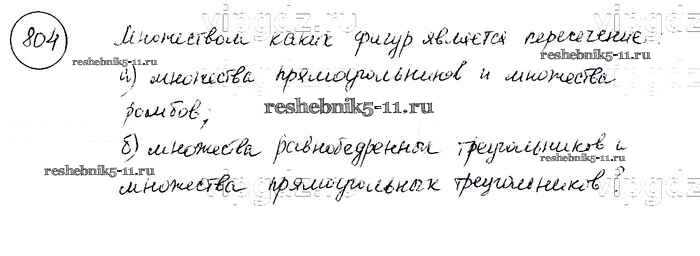 804 Множеством каких фигур является пересечение:
а) множества прямоугольников и множества
ромбов;
б) множества равнобедренных треугольников и
множества прямоугольных треугольников?
reshebnik5-11.ru
reshebnik5-11.ru
reshebnik5-11.ru
reshebnik5-11.ru
reshebnik5-11.ru
vipgdz
vipgdz